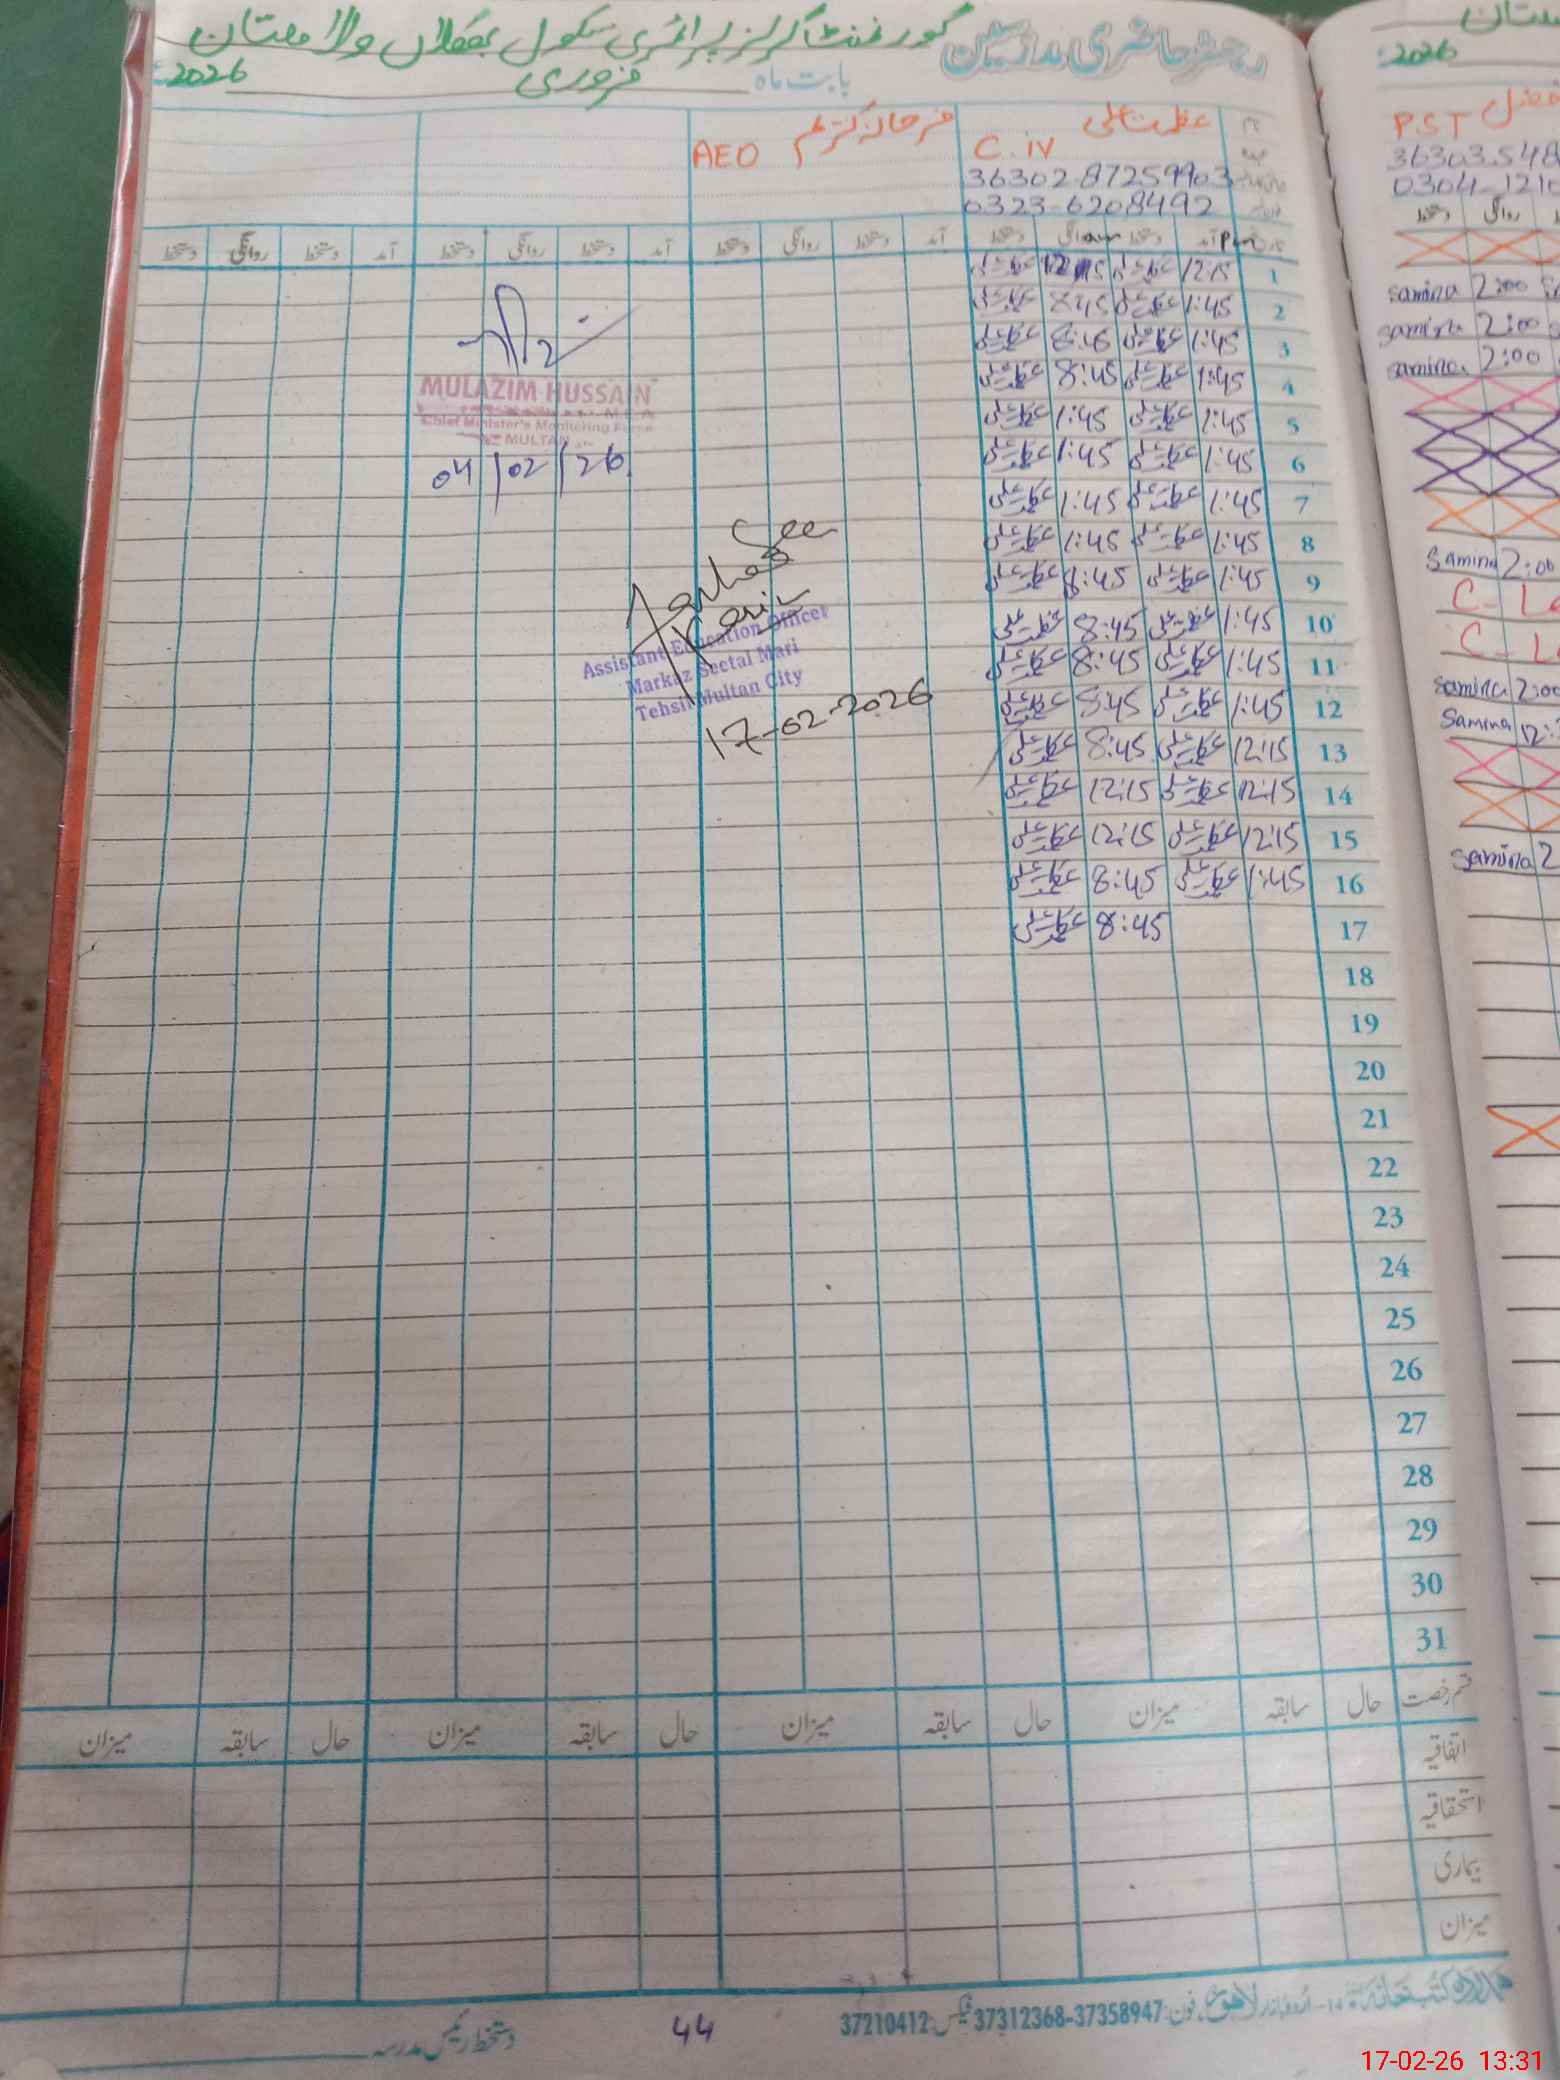 رجسٹر حاضری مدرسین گورنمنٹ گرلز پرائمری سکول بھلاں والا ملتان
بابت ماہ فروری 2026
نام عظمت علی
C. iv
36302-87259903
0323-6208492
فرحانہ کریم
AEO
آمد دستخط روانگی دستخط آمد دستخط روانگی دستخط آمد دستخط روانگی دستخط آمد دستخط روانگی دستخط
pm am
1 12:15 عظمت علی عظمت علی
2 1:45 عظمت علی 8:45 عظمت علی
3 1:45 عظمت علی عظمت علی
4 1:45 عظمت علی 8:45 عظمت علی
5 1:45 عظمت علی 1:45 عظمت علی
6 1:45 عظمت علی 1:45 عظمت علی
7 1:45 عظمت علی 1:45 عظمت علی
8 1:45 عظمت علی 1:45 عظمت علی
9 1:45 عظمت علی 8:45 عظمت علی
10 1:45 عظمت علی 8:45 عظمت علی
11 1:45 عظمت علی 8:45 عظمت علی
12 1:45 عظمت علی 8:45 عظمت علی
13 12:15 عظمت علی 8:45 عظمت علی
14 12:15 عظمت علی 12:15 عظمت علی
15 12:15 عظمت علی 12:15 عظمت علی
16 1:45 عظمت علی 8:45 عظمت علی
17 8:45 عظمت علی
18
19
20
21
22
23
24
25
26
27
28
29
30
31
MULAZIM HUSSAIN
M.E.A
Chief Minister's Monitoring Force
MULTAN
04/02/26
See
Assistant Education Officer
Markaz Seetal Mari
Tehsil Multan City
17-02-2026
قسم رخصت حال سابقہ میزان حال سابقہ میزان حال سابقہ میزان حال سابقہ میزان
اتفاقیہ
استحقاقیہ
بیماری
میزان
کتب خانہ 14-اردو بازار لاہور فون: 37312368-37358947 فیکس: 37210412
44
دستخط رئیس مدرسہ
ملتان
2026
P.ST
36303548
0304-1210
دستخط روانگی
samina 2:00
samina 2:00
samina 2:00
Samina 2:00
C-Le
C-L
samina 2:00
Samina 12:
samina 2
17-02-26 13:31